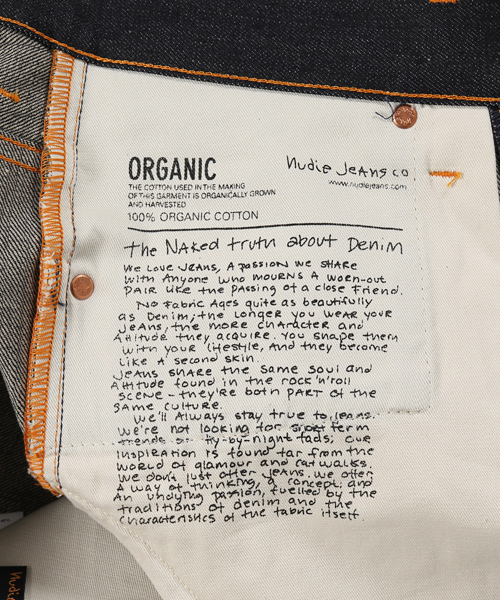 ORGANIC
THE COTTON USED IN THE MAKING
OF THIS GARMENT IS ORGANICALLY GROWN
AND HARVESTED
100% ORGANIC COTTON
nudie JEANS CO
www.nudiejeans.com
The NAKED truth about Denim
We love JEANS, A PASSION we SHARE
with Anyone who MOURNS A worn-out
PAIR like the passing of a close friend.
No Fabric Ages quite as beautifully
as Denim; the longer you wear your
Jeans, the more character and
Attitude they acquire. You shape them
with your lifestyle, and they become
like a second skin.
Jeans share the same soul and
Attitude found in the rock'n'roll
scene - they're both part of the
same culture.
We'll Always stay true to Jeans.
We're not looking for short term
trends or fly-by-night fads; our
inspiration is found far from the
world of glamour and catwalks.
We don't just offer Jeans. We offer
A way of thinking, a concept, and
An undying passion, fuelled by the
traditions of denim and the
characteristics of the fabric itself.
nudie